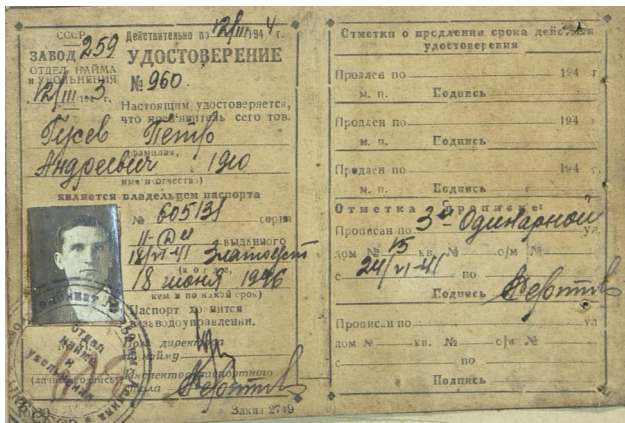 СССР
ЗАВОД 259
ОТДЕЛ НАЙМА
И УВОЛЬНЕНИЯ
12/III 1943
Действительно по 12/III 1944 г.
УДОСТОВЕРЕНИЕ
№ 960.
Настоящим удостоверяется,
что предъявитель сего тов.
Гусев Петр
(фамилия,
Андреевич 1910
имя и отчество)
является владельцем паспорта
№ 605139 серия
II-ДИ выданного
18/VI-41 Златоуст
(когда,
18 июня 1946
кем и по какой срок)
Паспорт хранится
в заводоуправлении.
Пом. директора
по найму
Инспектор паспортного
стола
(личная подпись)
ОТДЕЛ
НАЙМА
И
УВОЛЬНЕНИЯ
Заказ 2749
Отметки о продлении срока действия
удостоверения
Продлен по 194 г.
м. п. Подпись
Продлен по 194
м. п. Подпись
Продлен по 194 г.
м. п. Подпись
Отметка о прописке:
Прописан по 3-я Одинарной ул.
дом № 15 кв. № о/м №
с 24/VI-41 по
Подпись
Прописан по ул
дом № кв. № о/м №
с по
Подпись